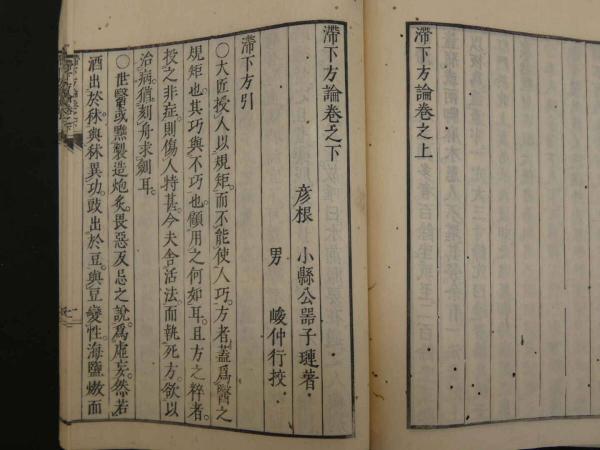 滯下方論卷之上
滯下方論卷之下
彥根 小縣公器子璉著
男 峻仲行挍
滯下方引
○大匠授人以規矩。而不能使人巧。方者蓋爲醫之
規矩也。其巧與不巧也。顧用之何如耳。且方之粹者。
投之非症。則傷人特甚。今夫舍活法。而執死方。欲以
治病。猶刻舟求劍耳。
○世醫或㸃製造炮炙。畏惡反忌之說。爲虛妄。然若
酒出於秫。與秫異功。豉出於豆。與豆變性。海鹽燉而